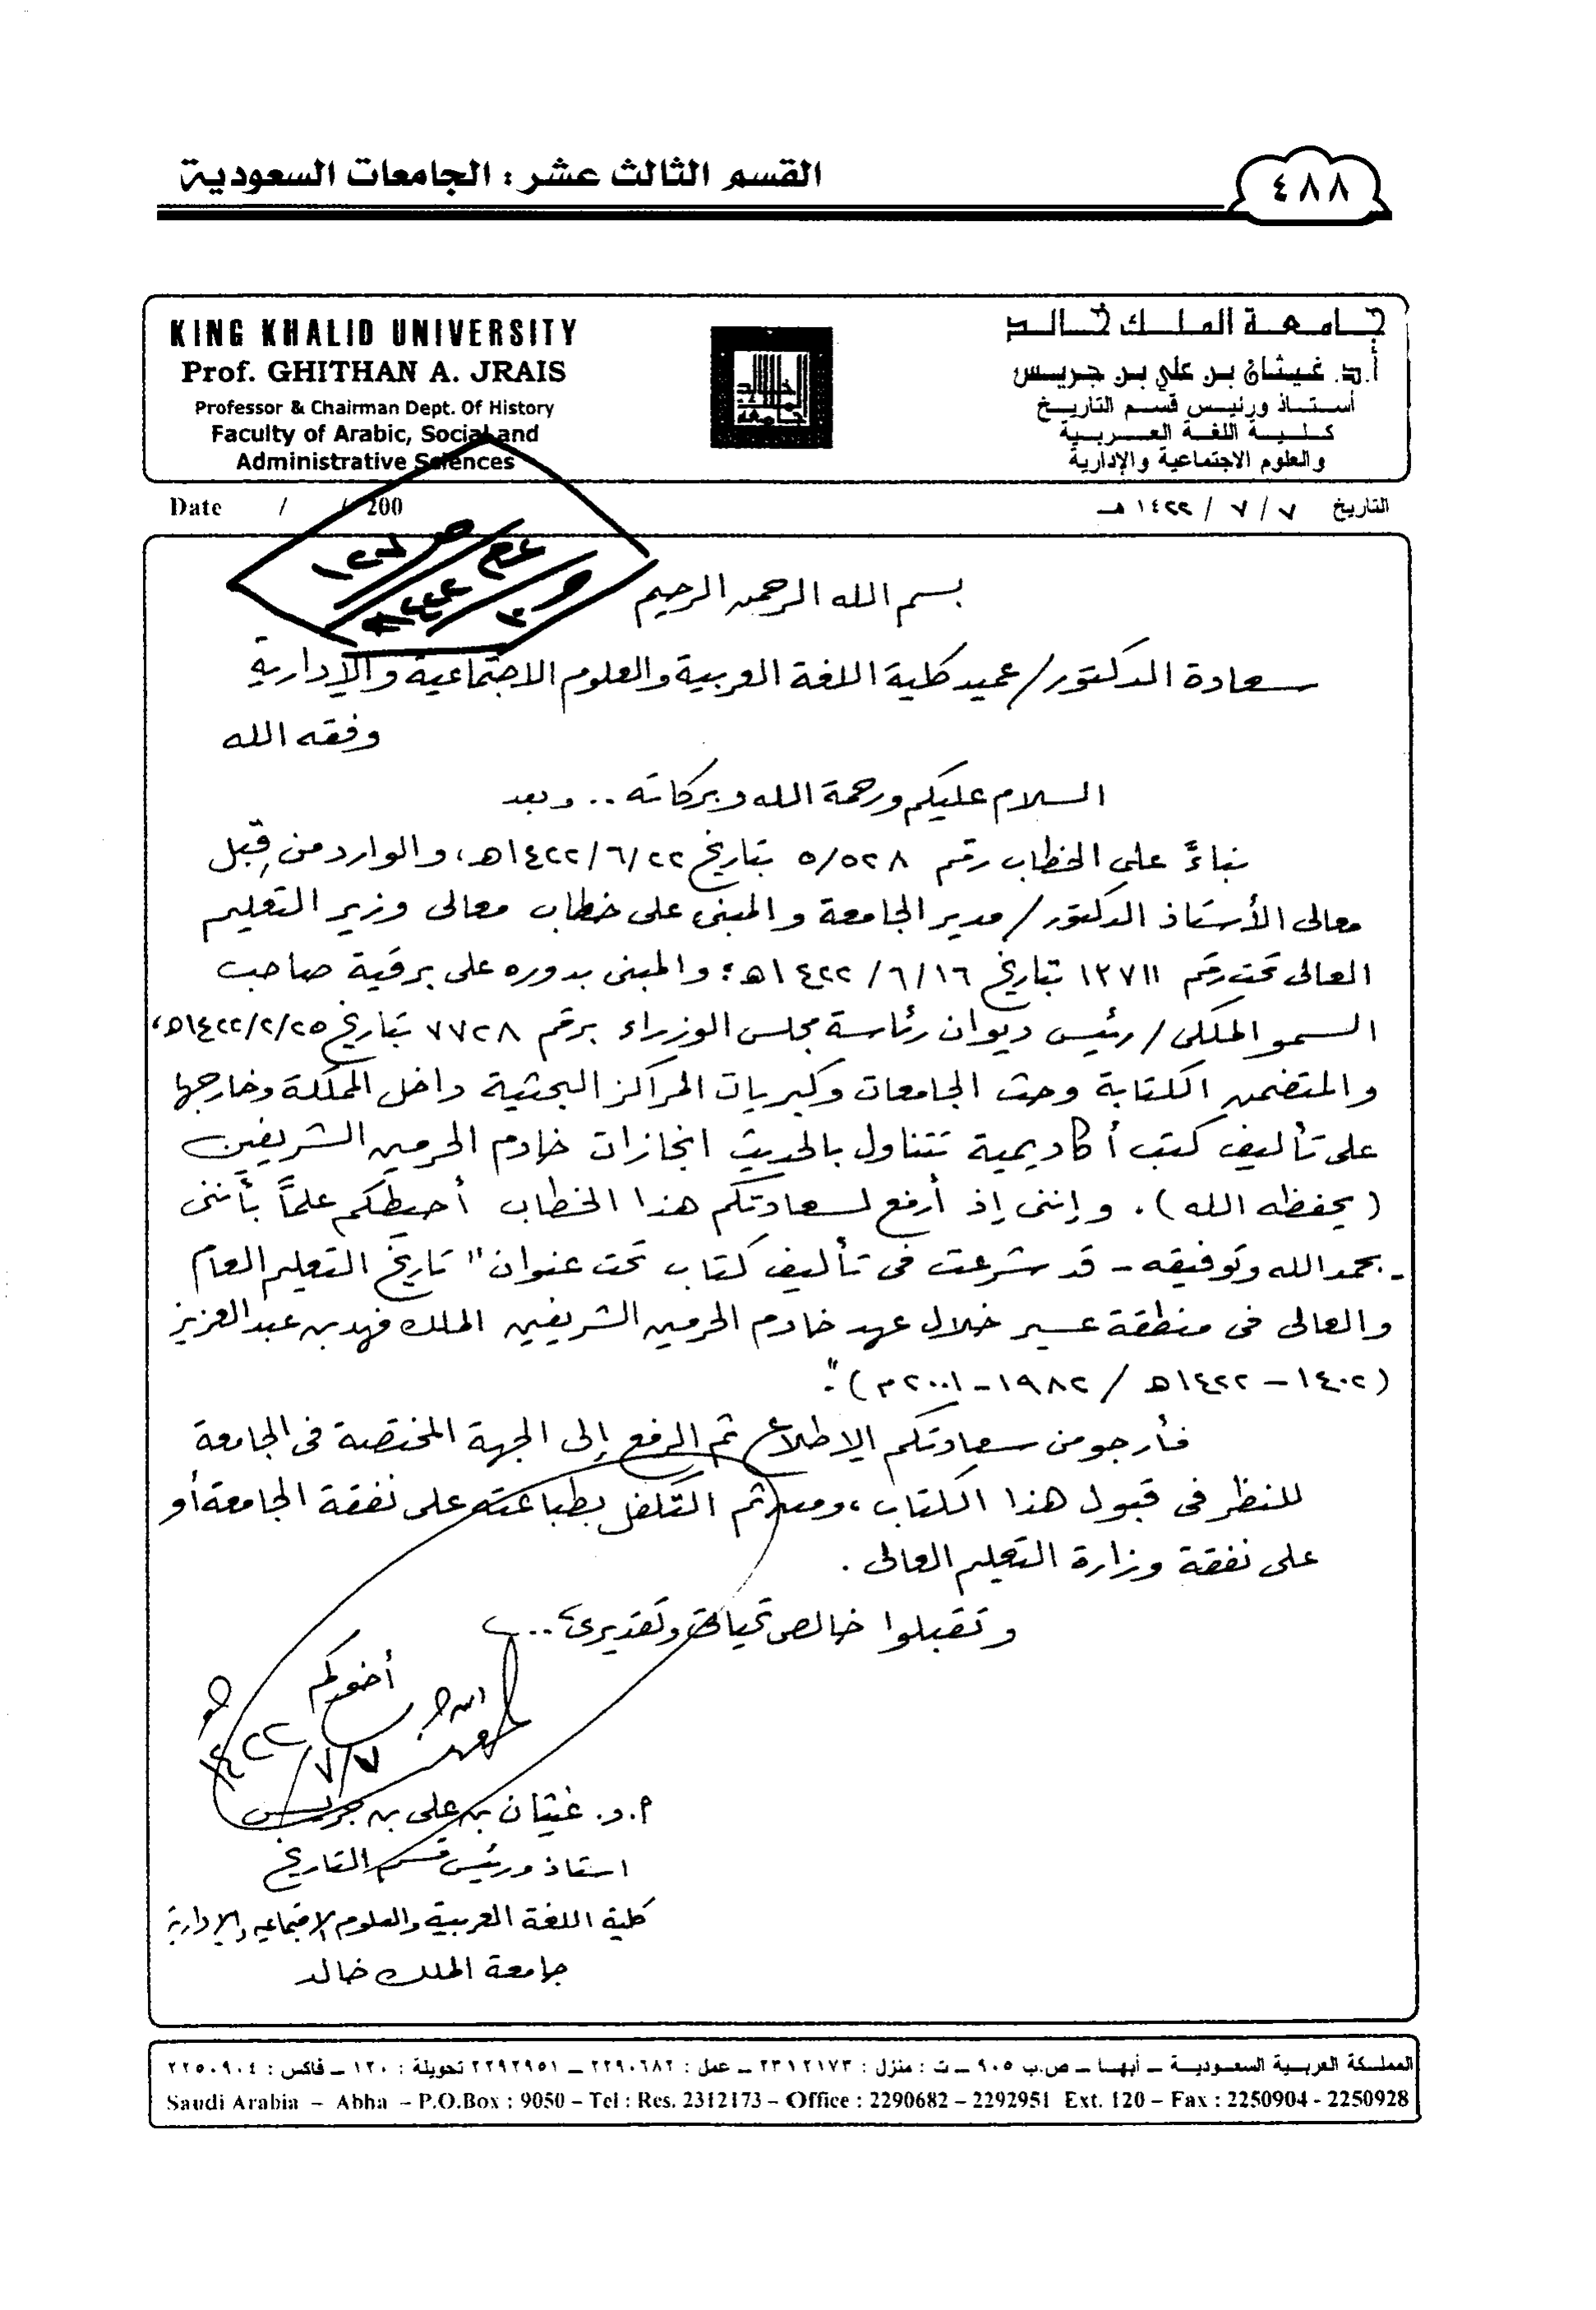 القسم الثالث عشر : الجامعات السعودية
٤٨٨
KING KHALID UNIVERSITY
Prof. GHITHAN A. JRAIS
Professor & Chairman Dept. Of History
Faculty of Arabic, Social and
Administrative Sciences
جامعة الملك خالد
أ.د. غيثان بن علي بن جريس
أستاذ ورئيس قسم التاريخ
كلية اللغة العربية
والعلوم الاجتماعية والإدارية
Date / / 200
التاريخ ٧ / ٧ / ١٤٢٢ هـ
بسم الله الرحمن الرحيم
سعادة الدكتور/ عميد كلية اللغة العربية والعلوم الاجتماعية والإدارية
وفقه الله
السلام عليكم ورحمة الله وبركاته .. وبعد
بناءً على الخطاب رقم ٥/٥٢٨ بتاريخ ١٤٢٢/٦/٢٢هـ، والوارد من قِبل
معالى الأستاذ الدكتور/ مدير الجامعة والمبنى على خطاب معالى وزير التعليم
العالى تحت رقم ١٣٧١١ بتاريخ ١٤٢٢/٦/١٦هـ؛ والمبنى بدوره على برقية صاحب
السمو الملكى/ رئيس ديوان رئاسة مجلس الوزراء برقم ٧٧٢٨ بتاريخ ١٤٢٢/٢/٢٥هـ،
والمتضمن الكتابة وحث الجامعات وكبريات المراكز البحثية داخل المملكة وخارجها
على تأليف كتب أكاديمية تتناول بالحديث انجازات خادم الحرمين الشريفين
(يحفظه الله). وإننى إذ أرفع لسعادتكم هذا الخطاب أحيطكم علماً بأننى
- بحمد الله وتوفيقه - قد شرعت فى تأليف كتاب تحت عنوان " تاريخ التعليم العام
والعالى فى منطقة عسير خلال عهد خادم الحرمين الشريفين الملك فهد بن عبدالعزيز
(١٤٠٢ - ١٤٢٢هـ / ١٩٨٢ - ٢٠٠١م)".
فأرجو من سعادتكم الإطلاع ثم الرفع إلى الجهة المختصة فى الجامعة
للنظر فى قبول هذا الكتاب، ومن ثم التكفل بطباعته على نفقة الجامعة أو
على نفقة وزارة التعليم العالى .
وتقبلوا خالص تحياتى وتقديرى، ..
أخوكم
١٤٢٢/٧/٧
أ.د. غيثان بن على بن جريس
استاذ ورئيس قسم التاريخ
كلية اللغة العربية والعلوم الاجتماعية والإدارية
جامعة الملك خالد
المملكة العربية السعودية – أبها – ص.ب ٩٠٥ – ت : منزل : ٢٣١٢١٧٣ – عمل : ٢٢٩٠٦٨٢ – ٢٢٩٢٩٥١ تحويلة : ١٢٠ – فاكس : ٢٢٥٠٩٠٤
Saudi Arabia – Abha – P.O.Box : 9050 – Tel : Res. 2312173 – Office : 2290682 – 2292951 Ext. 120 – Fax : 2250904 - 2250928